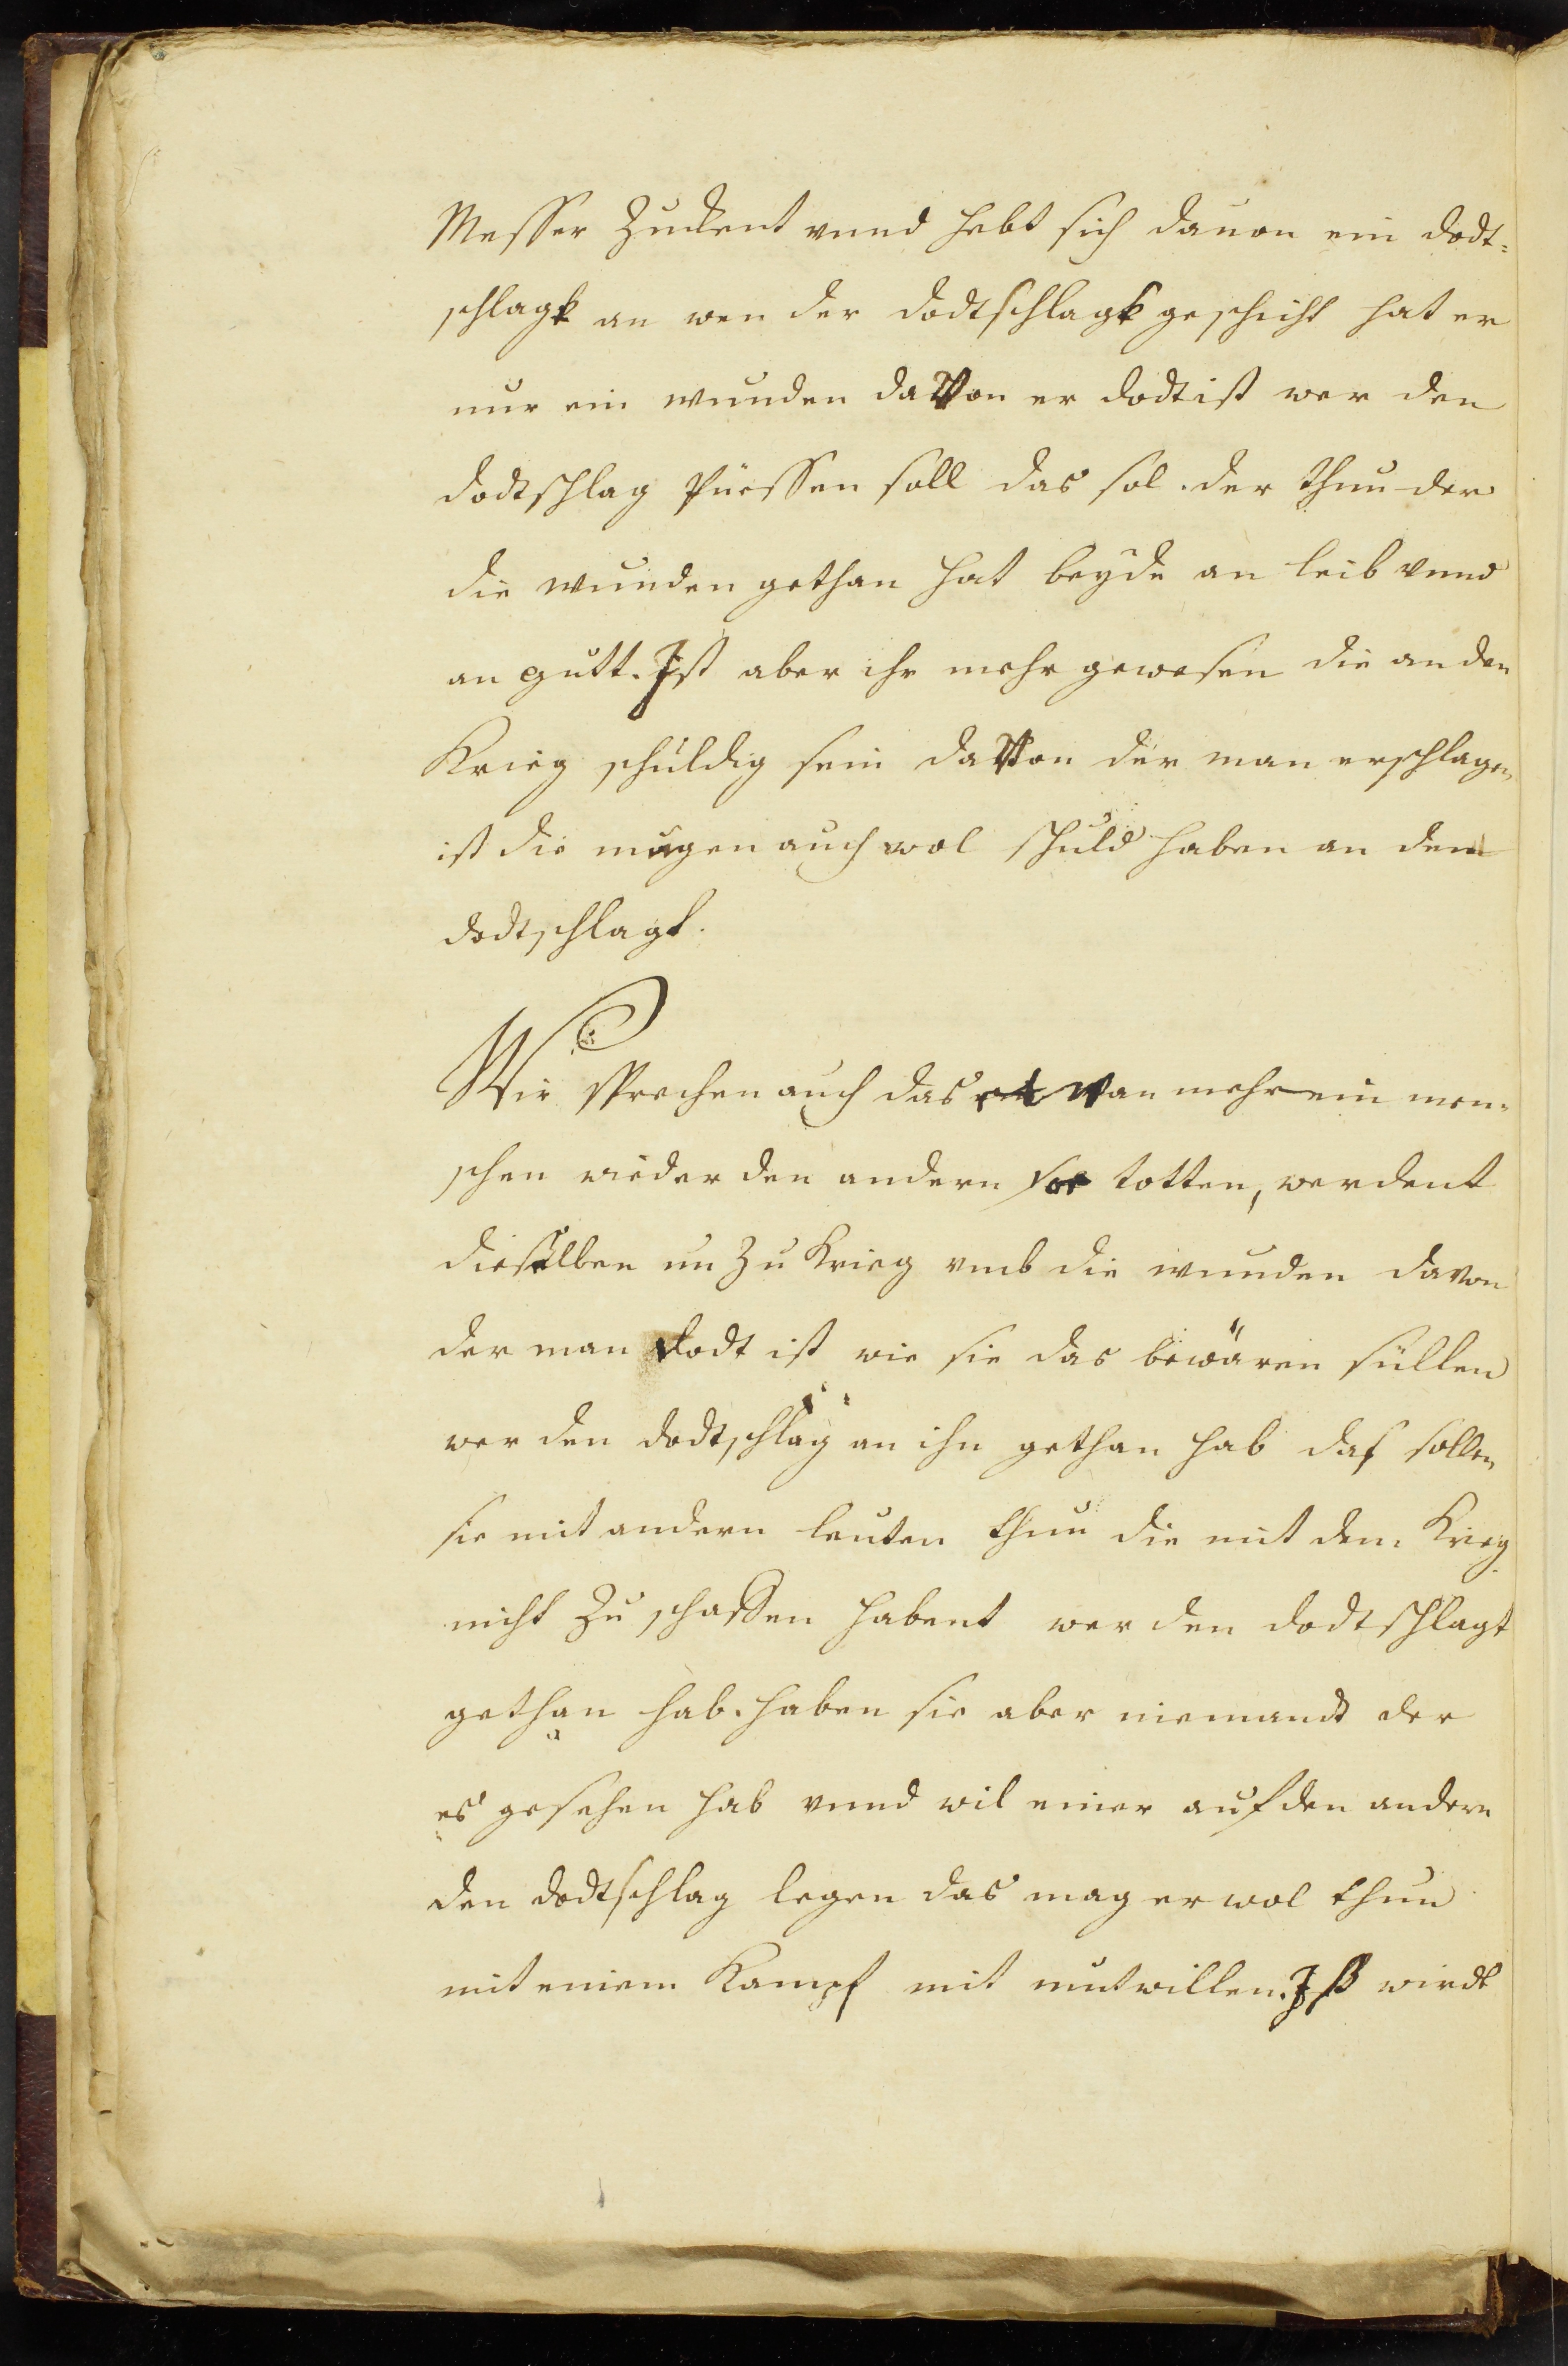 Messer Zuckent vnnd hebt sich dauon ein dodt=
schlagk an wen der dodtschlagk geschicht hat er
nur ein wunden davon er dodt ist wer den
dodtschlag püessen soll das sol der thun der
die wunden gethan hat beyde an leib vnnd
an gutt. Ist aber ihr mehr gewesen die an den
Krieg schuldig sein davon der man erschlagen
ist die mugen auch wol schuld haben an dem
dodtschlagk.
Wir sprechen auch das van mehr ein men=
schen wieder den andern totten, werdent
dieselben un Zu Krieg vmb die wunden davon
der man dodt ist wie sie das bewären süllen
wer den dodtschlag an ihn gethan hab daß sollen
sie mit andern leuten thun die mit dem Krieg
nicht Zu schaffen habent wer den dodtschlagk
gethan hab. haben sie aber niemandt der
es gesehen hab vnnd wil einer auf den andern
den dodtschlag legen das mag er wol thun
mit einem Kampf mit mutwillen. Iß wirdt